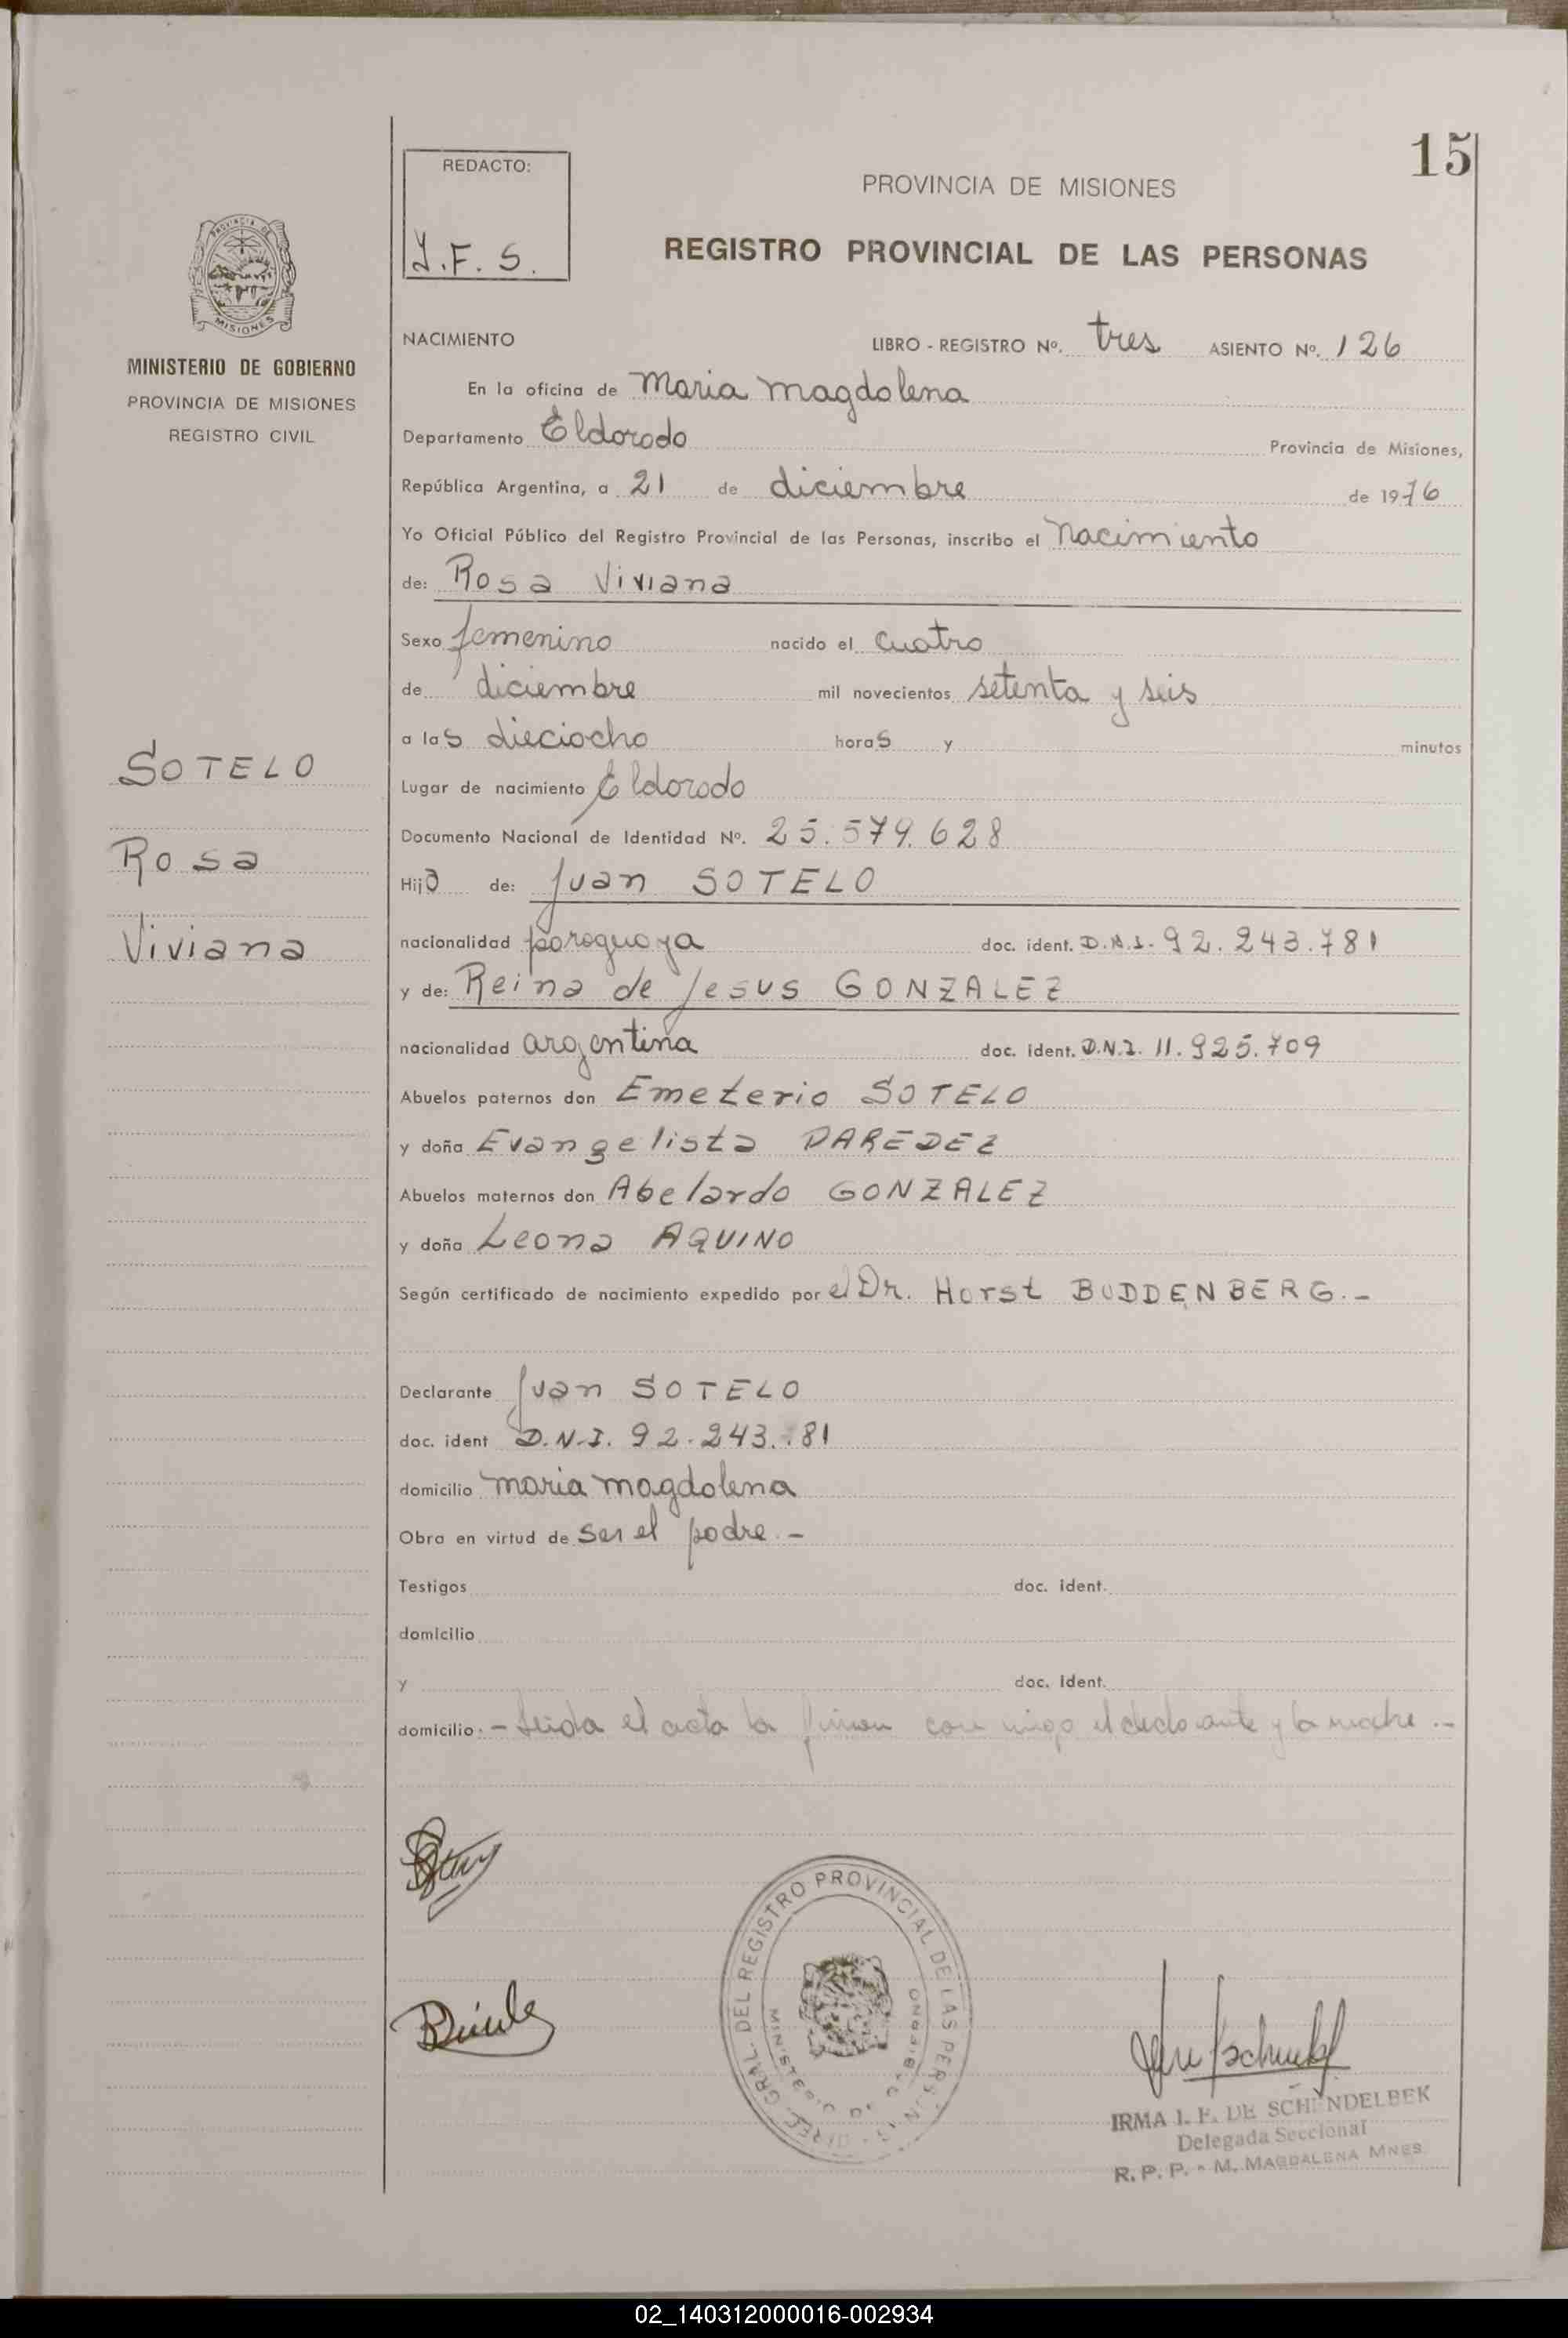 15
REDACTO:
J.F.S.
PROVINCIA DE MISIONES
REGISTRO PROVINCIAL DE LAS PERSONAS
PROVINCIA DE MISIONES
MINISTERIO DE GOBIERNO
PROVINCIA DE MISIONES
REGISTRO CIVIL
SOTELO
Rosa
Viviana
NACIMIENTO LIBRO - REGISTRO Nº. tres ASIENTO Nº. 126
En la oficina de Maria Magdalena
Departamento Eldorado Provincia de Misiones,
República Argentina, a 21 de diciembre de 1976
Yo Oficial Público del Registro Provincial de las Personas, inscribo el nacimiento
de: Rosa Viviana
Sexo femenino nacido el cuatro
de diciembre mil novecientos setenta y seis
a las dieciocho horas y minutos
Lugar de nacimiento Eldorado
Documento Nacional de Identidad Nº. 25.579.628
Hija de: Juan SOTELO
nacionalidad paraguaya doc. ident. D.N.I. 92.243.781
y de: Reina de Jesus GONZALEZ
nacionalidad argentina doc. ident. D.N.I. 11.925.709
Abuelos paternos don Emeterio SOTELO
y doña Evangelista PAREDEZ
Abuelos maternos don Abelardo GONZALEZ
y doña Leona AQUINO
Según certificado de nacimiento expedido por el Dr. Horst BUDDENBERG.-
Declarante Juan SOTELO
doc. ident D.N.I. 92.243. 81
domicilio Maria Magdalena
Obra en virtud de ser el padre.-
Testigos doc. ident.
domicilio
y doc. ident.
domicilio:- Leida el acta la firman con migo el declarante y la madre.-
DIREC. GRAL. DEL REGISTRO PROVINCIAL DE LAS PERSONAS
MINISTERIO DE GOBIERNO
IRMA I. F. DE SCHENDELBEK
Delegada Seccional
R. P. P. - M. MAGDALENA MNES
02_140312000016-002934